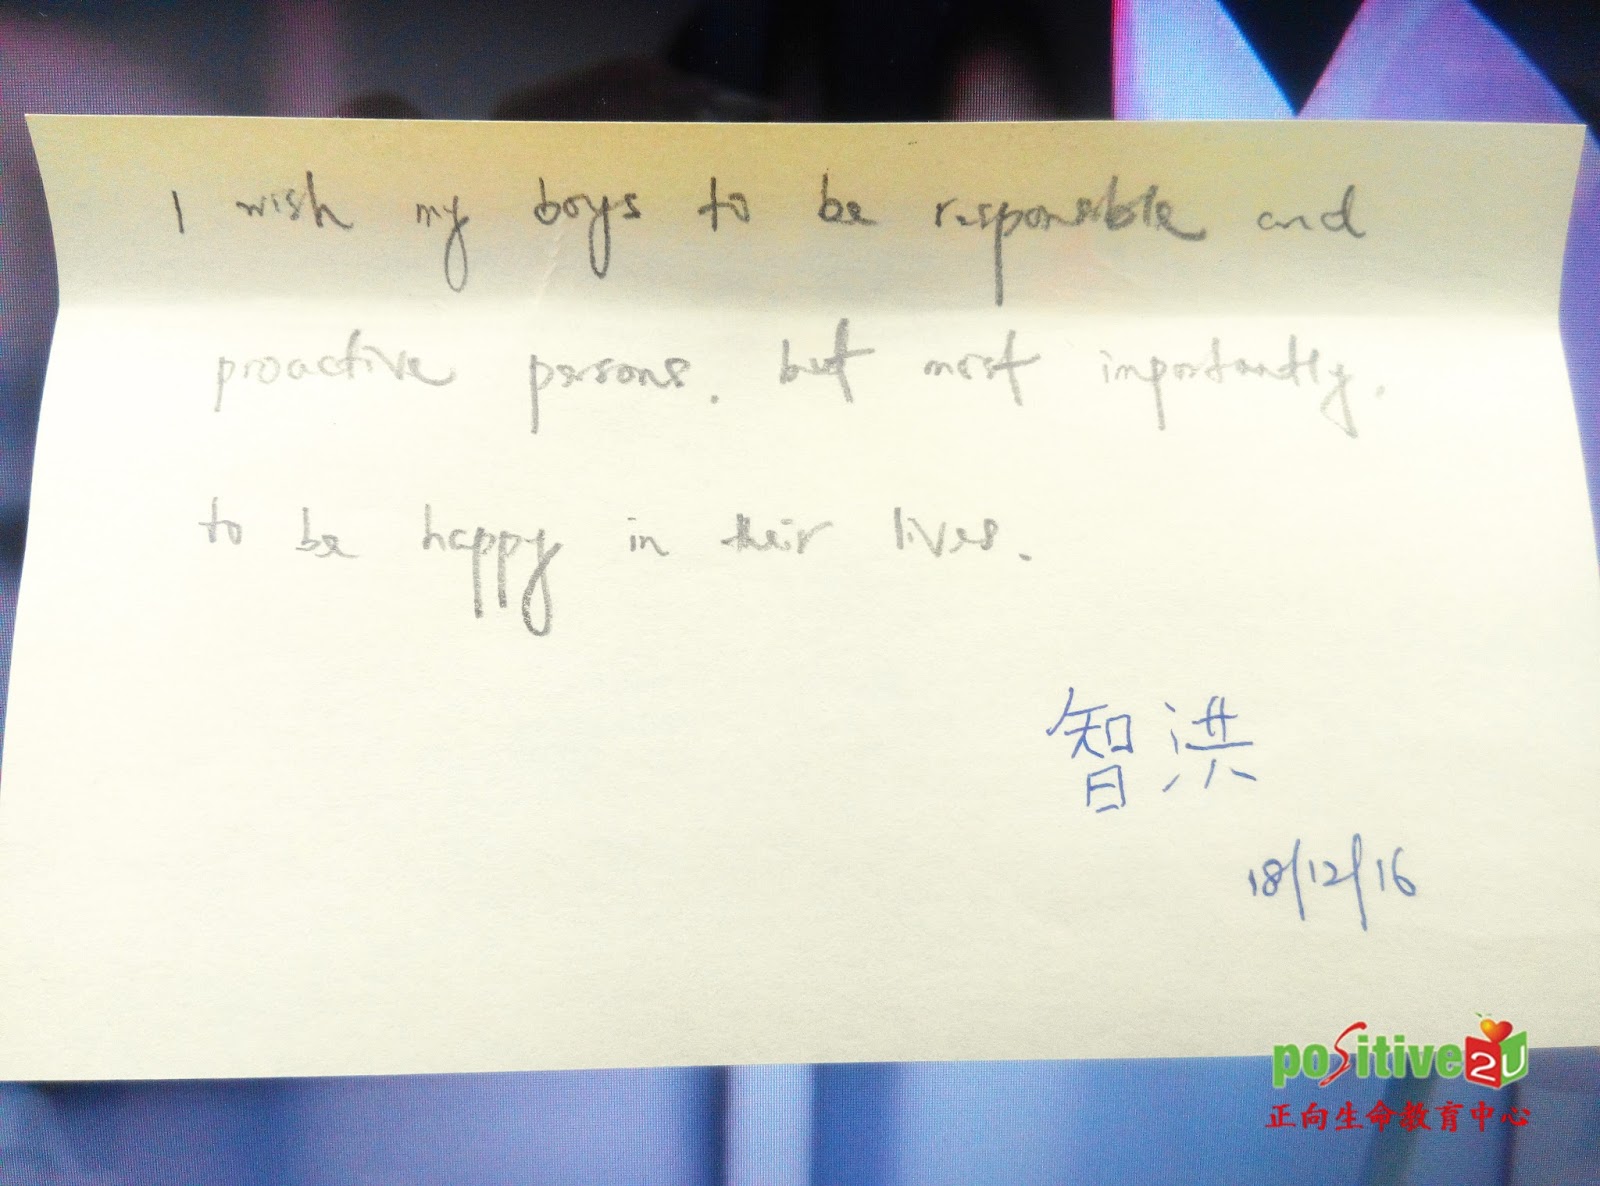 I wish my boys to be responsible and
proactive persons. but most importantly,
to be happy in their lives.
智洪
18/12/16
positive2U
正向生命教育中心